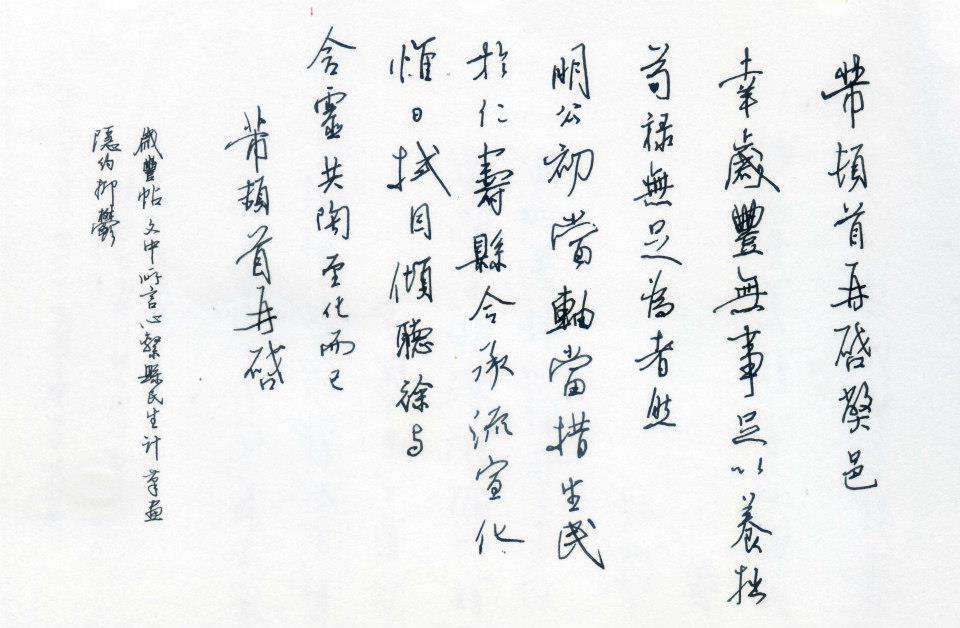 芾頓首再啓弊邑
幸歲豐無事足以養拙
苟祿無足為者然
明公初當軸當措生民
於仁壽縣令承流宣化
惟日拭目傾聽徐與
含靈共陶至化而已
芾頓首再啓
歲豐帖 文中所言心繫縣民生計 筆畫
隱約抑鬱